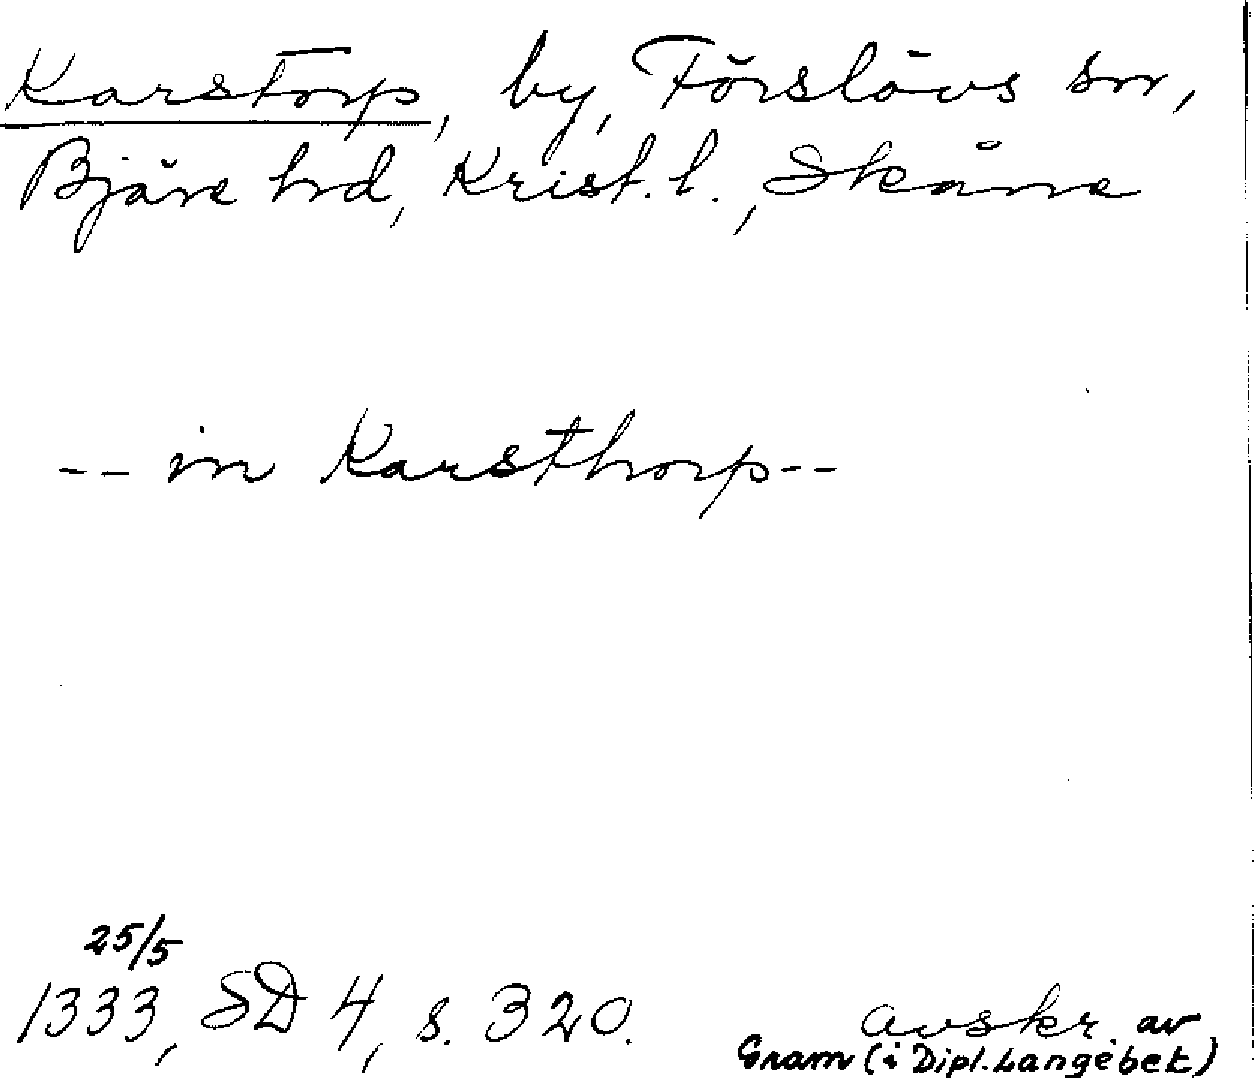 Karstorp, by, Förslövs sn,
Bjäre hd, Krist. l., Skåne
-- in Karsthorp --
25/5
1333, SD 4, s. 320.
avskr. av
Gram (i Dipl. Langebek)